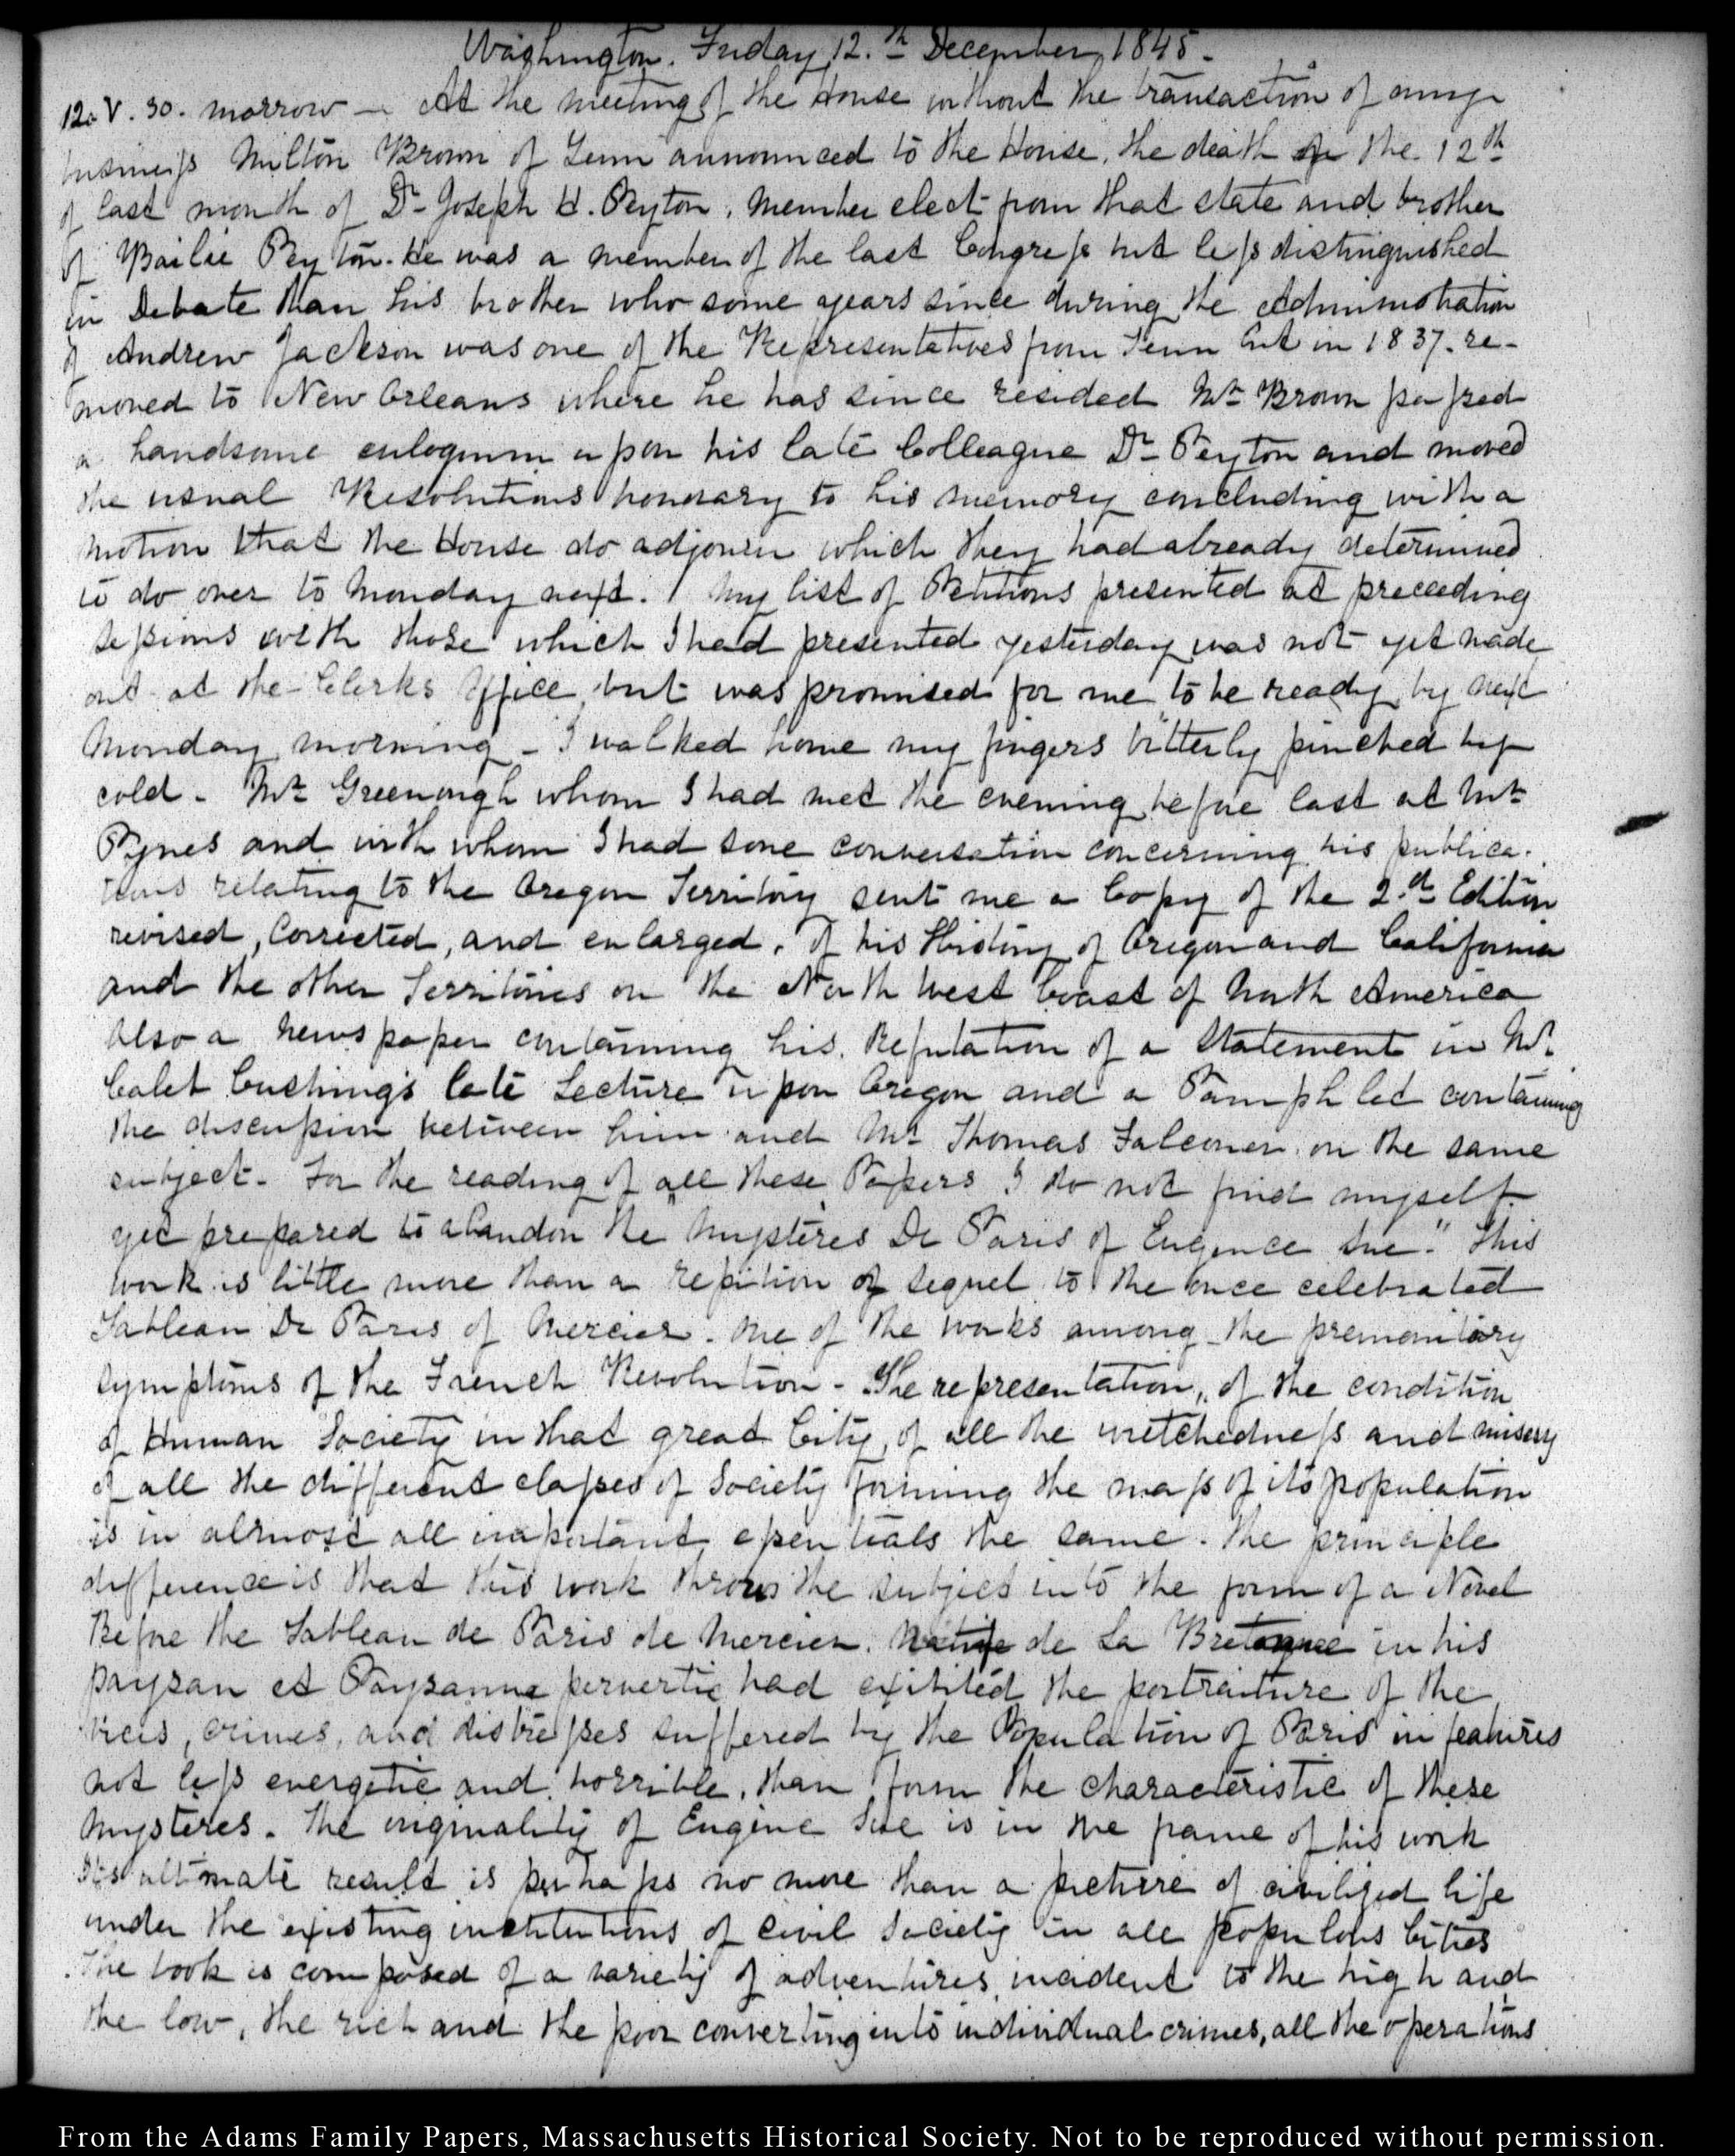 Washington. Friday 12.th December 1845.
12. V. 30. morrow — At the meeting of the House without the transaction of any
business Milton Brown of Tenn announced to the House, the death on the 12th
of last month of Dr Joseph H. Peyton, Member elect from that state and brother
of Bailie Peyton. He was a member of the last Congress but less distinguished
in Debate than his brother who some years since during the Administration
of Andrew Jackson was one of the Representatives from Tenn but in 1837. re-
moved to New Orleans where he has since resided Mr Brown passed
a handsome eulogium upon his late Colleague Dr Peyton and moved
the usual Resolutions honorary to his memory concluding with a
motion that the House do adjourn which they had already determined
to do over to Monday next. My list of Petitions presented at preceeding
sessions with those which I had presented yesterday was not yet made
out at the Clerks Office but was promised for me to be ready by next
Monday morning — I walked home my fingers bitterly pinched by
cold — Mr Greenough whom I had met the evening before last at Mr
Pynes and with whom I had some conversation concerning his publica-
tions relating to the Oregon Territory sent me a Copy of the 2.d Edition
revised, Corrected, and enlarged, of his History of Oregon and California
and the other Territories on the North West Coast of North America
Also a newspaper containing his Refutation of a Statement in Mr.
Calet Cushing's late Lecture upon Oregon and a Pamphlet containing
the discussion between him and Mr Thomas Falconer on the same
subject — For the reading of all these Papers I do not find myself
yet prepared to abandon the Mystères De Paris of Eugence Sue." This
work is little more than a repition of sequel to the once celebrated
Tableau De Paris of Mercier. One of the works among the premonitory
symptoms of the French Revolution — The representation, of the condition
of Human Society in that great City, of all the wretchedness and misery
of all the different classes of Society forming the mass of its population
is in almost all important essentials the same. The principle
difference is that this work throws the subject into the form of a Novel
Before the Tableau de Paris de Mercier. de La Bretonne in his
paysan et Paysanne pervertie had exibited the portraiture of the
vices, crimes, and distresses suffered by the Population of Paris in features
not less energetic and horrible, than form the characteristic of these
Mysteres. The originality of Eugene Sue is in the frame of his work
Its ultimate result is perhaps no more than a picture of civilized life
under the existing institutions of civil Society in all populous Cities
The book is composed of a variety of adventures, incident to the high and
the low, the rich and the poor converting into individual crimes, all the operations
From the Adams Family Papers, Massachusetts Historical Society. Not to be reproduced without permission.